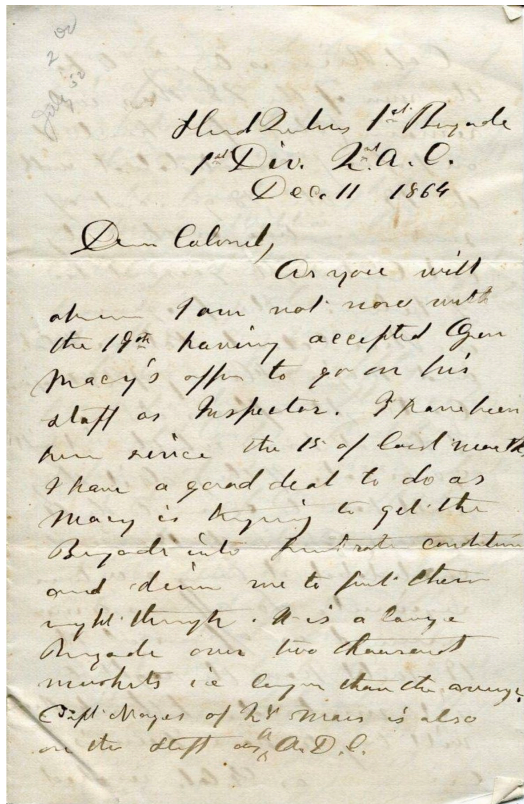 Head Quarters 1st Brigade
1st Div. 2nd A. C.
Dec. 11 1864
Dear Colonel,
As you will
observe I am not now with
the 19th having accepted Gen
Macy's offer to go on his
staff as Inspector. I have been
here since the 15 of last month
I have a good deal to do as
Macy is trying to get the
Brigade into first rate condition
and desires me to put them
right through. It is a large
Brigade over two thousand
muskets i.e. larger than the average.
Capt. Noyes of 28 Mass is also
on the staff as a A. D. C.